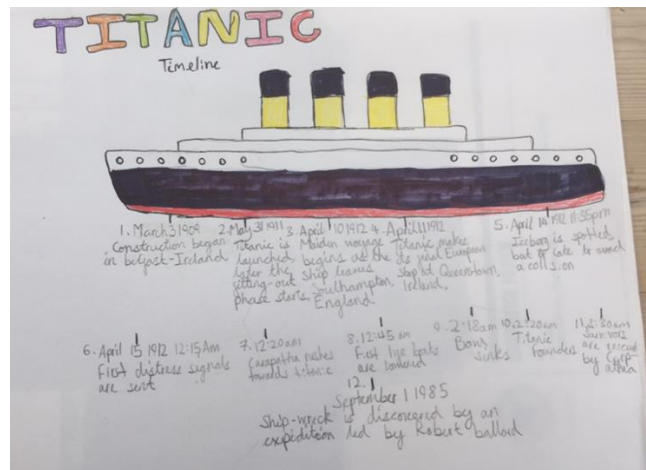 TITANIC
Timeline
1. March 31 1909
Construction began
in belfast-Ireland
2. May 31 1911
Titanic is
launched
later the
fitting-out
phase starts.
3. April 10 1912
Maiden voyage
begins as the
ship leaves
Southampton,
England
4. April 11 1912
Titanic makes
its final European
stop at Queenstown,
Ireland.
5. April 14 1912 11:35pm
Iceberg is spotted
but to late to avoid
a collision
6. April 15 1912 12:15Am
First distress signals
are sent
7. 12:20am
Carapatha rushes
towards titanic
8. 12:45 am
First life boats
are lowered
9. 2:18am
Bow
sinks
10. 2:20am
Titanic
founders
11.
are
by
12.
September 1 1985
Ship-wreck is discovered by an
expedition led by Robert ballard